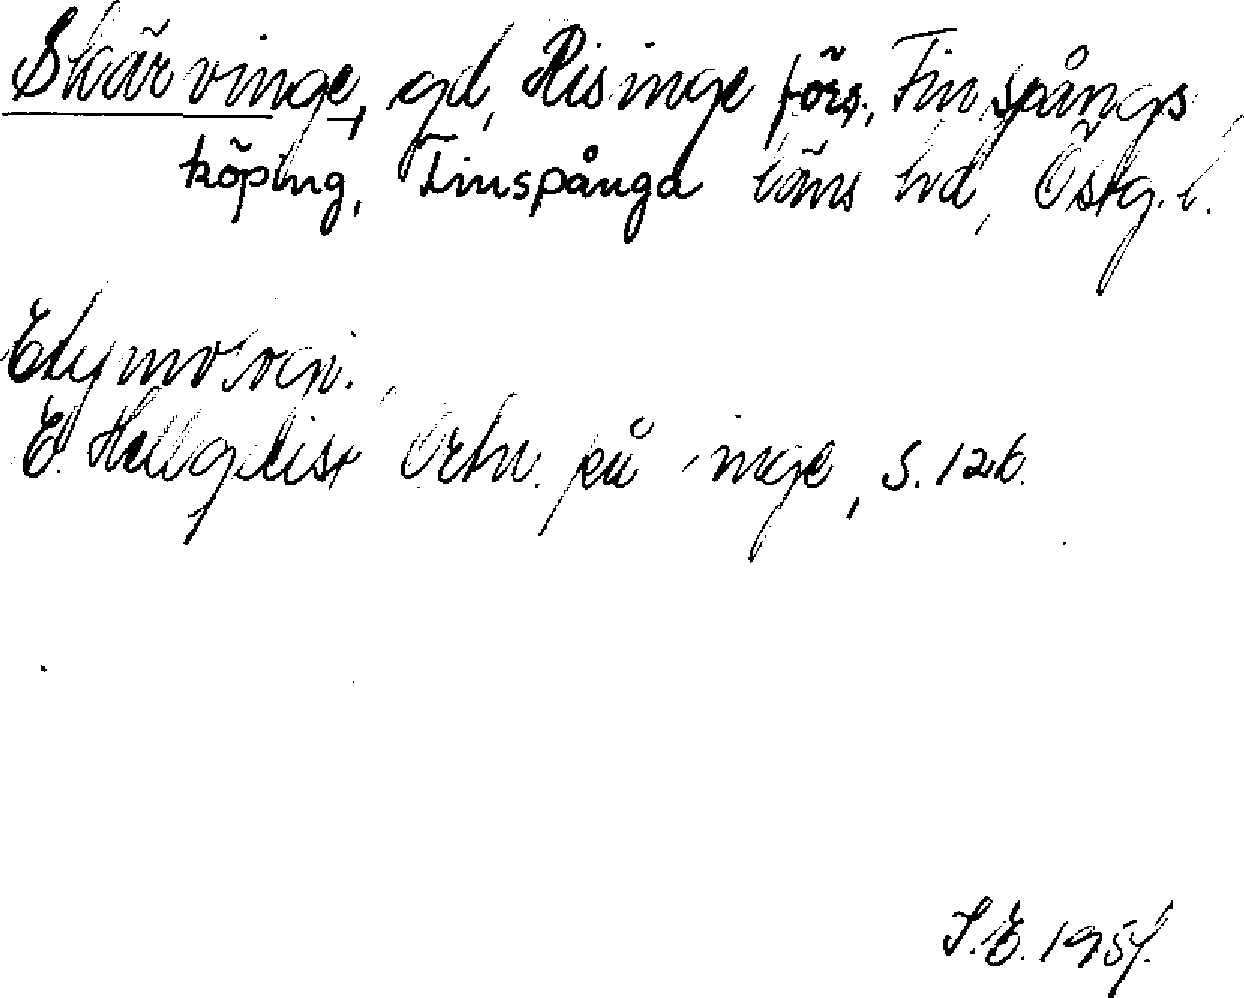 Skärvinge, gd, Risinge förs., Finspångs
köping, Finspånga läns hd, Östg.l.
Etymologi.
E. Hellquist Ortn. på -inge, s. 126.
S.E. 1951.